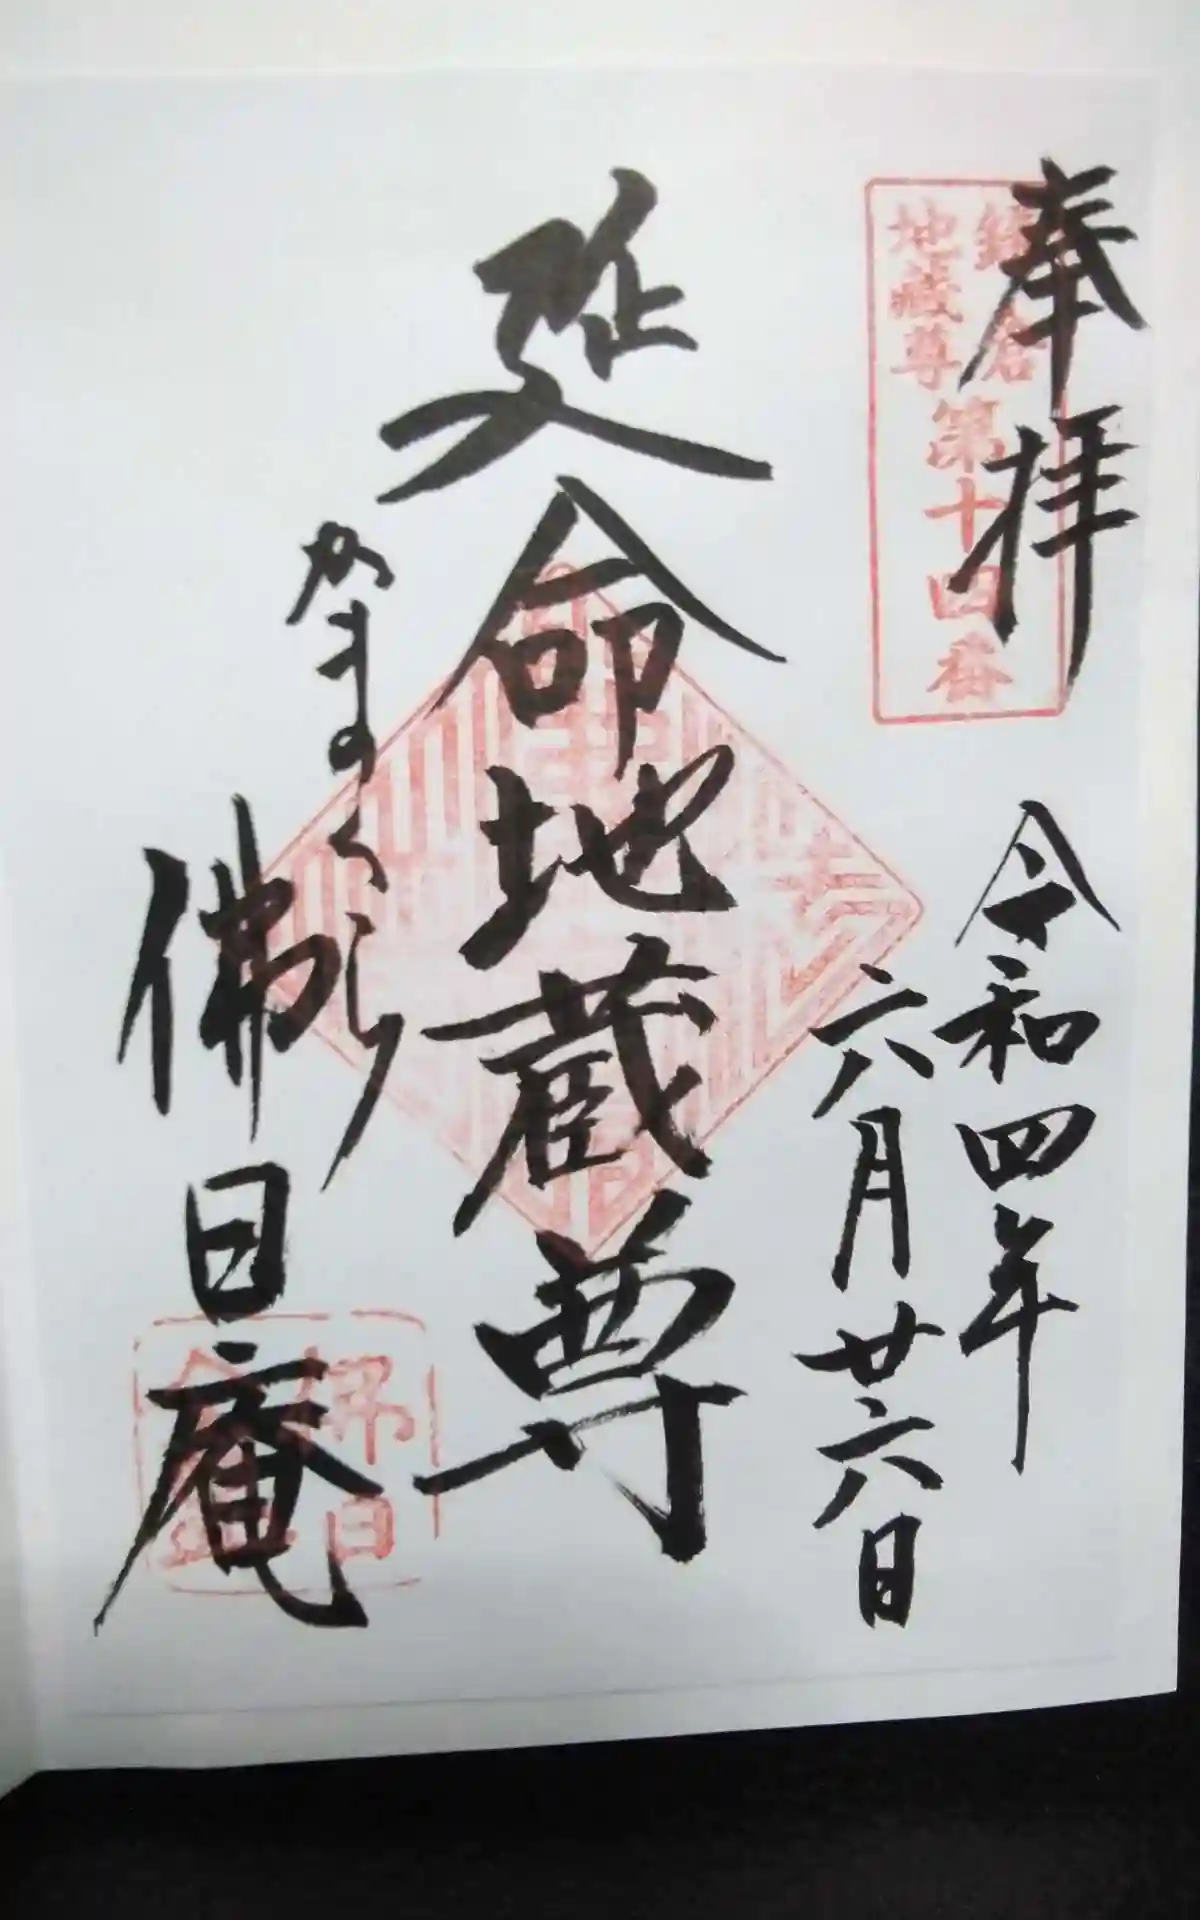 奉拝
鎌倉
地蔵尊
第十四番
令和四年
六月廿六日
延命地蔵尊
かまくら
佛日庵
佛日